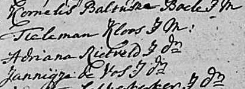 Kornelis Balthus Boele J M
Tieleman Kloos J M:
Adriana Rietveld J dn
Jannigje de Vos J dn
J dn